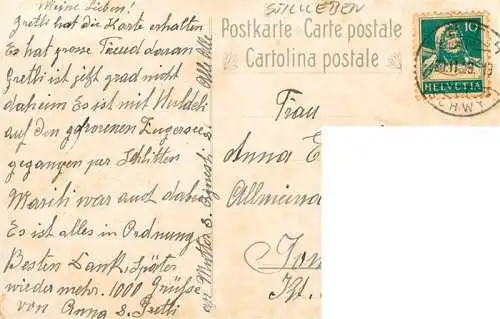 Meine Lieben!
Gretli hat die Karte erhalten
Es hat grosse Freud daran
Gretli ist jetzt grad nicht
daheim Es ist mit
auf den gefrorenen Zugersee
gegangen per Schlitten
war auch dabei
Es ist alles in Ordnung
Besten Dank, Später
wieder mehr. 1000 Grüsse
von Anna & Gretli
Mutter & Agnesli &
Postkarte Carte postale
Cartolina postale
10
HELVETIA
SCHWY
Frau
Anna E